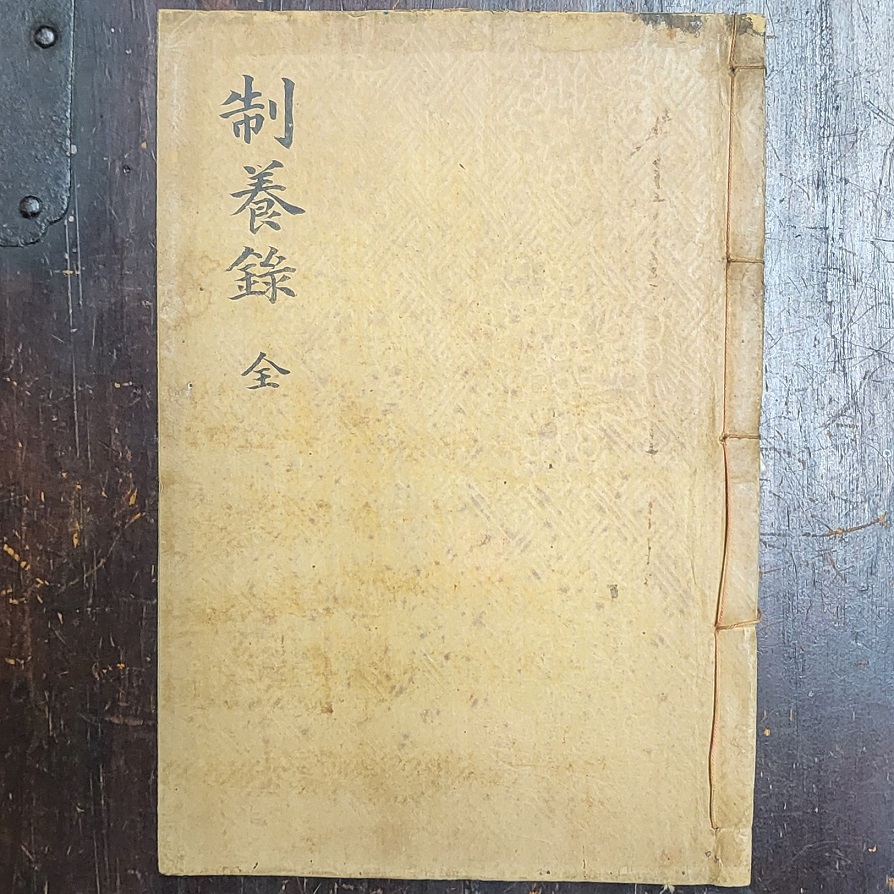 制養錄 全